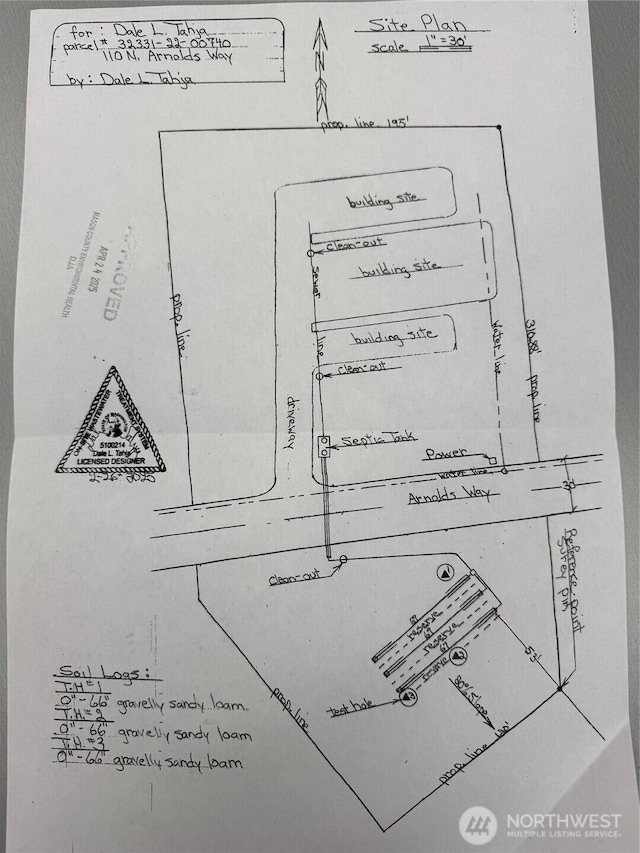 for: Dale L. Tahja
parcel# 32331-22-00740
110 N. Arnolds Way
by: Dale L. Tahja
Site Plan
scale 1" = 30'
N
prop. line 195'
building site
clean-out
building site
sewer
line
building site
clean-out
prop. line
driveway
water line
310.88' prop line
APPROVED
APR 24 2025
MASON COUNTY ENVIRONMENTAL HEALTH
DJA
5100214
Dale L. Tahja
LICENSED DESIGNER
2-26-2025
Septic Tank
Power
water line
Arnolds Way
30'
clean-out
Reference point
survey pin
1
67'
reserve
67'
reserve
67'
reserve
2
3
test hole
53'
slope
prop. line
prop. line 190'
Soil Logs:
T.H.#1
0"-66" gravelly sandy loam
T.H.#2
0"-66" gravelly sandy loam
T.H.#3
0"-66" gravelly sandy loam
NORTHWEST
MULTIPLE LISTING SERVICE®